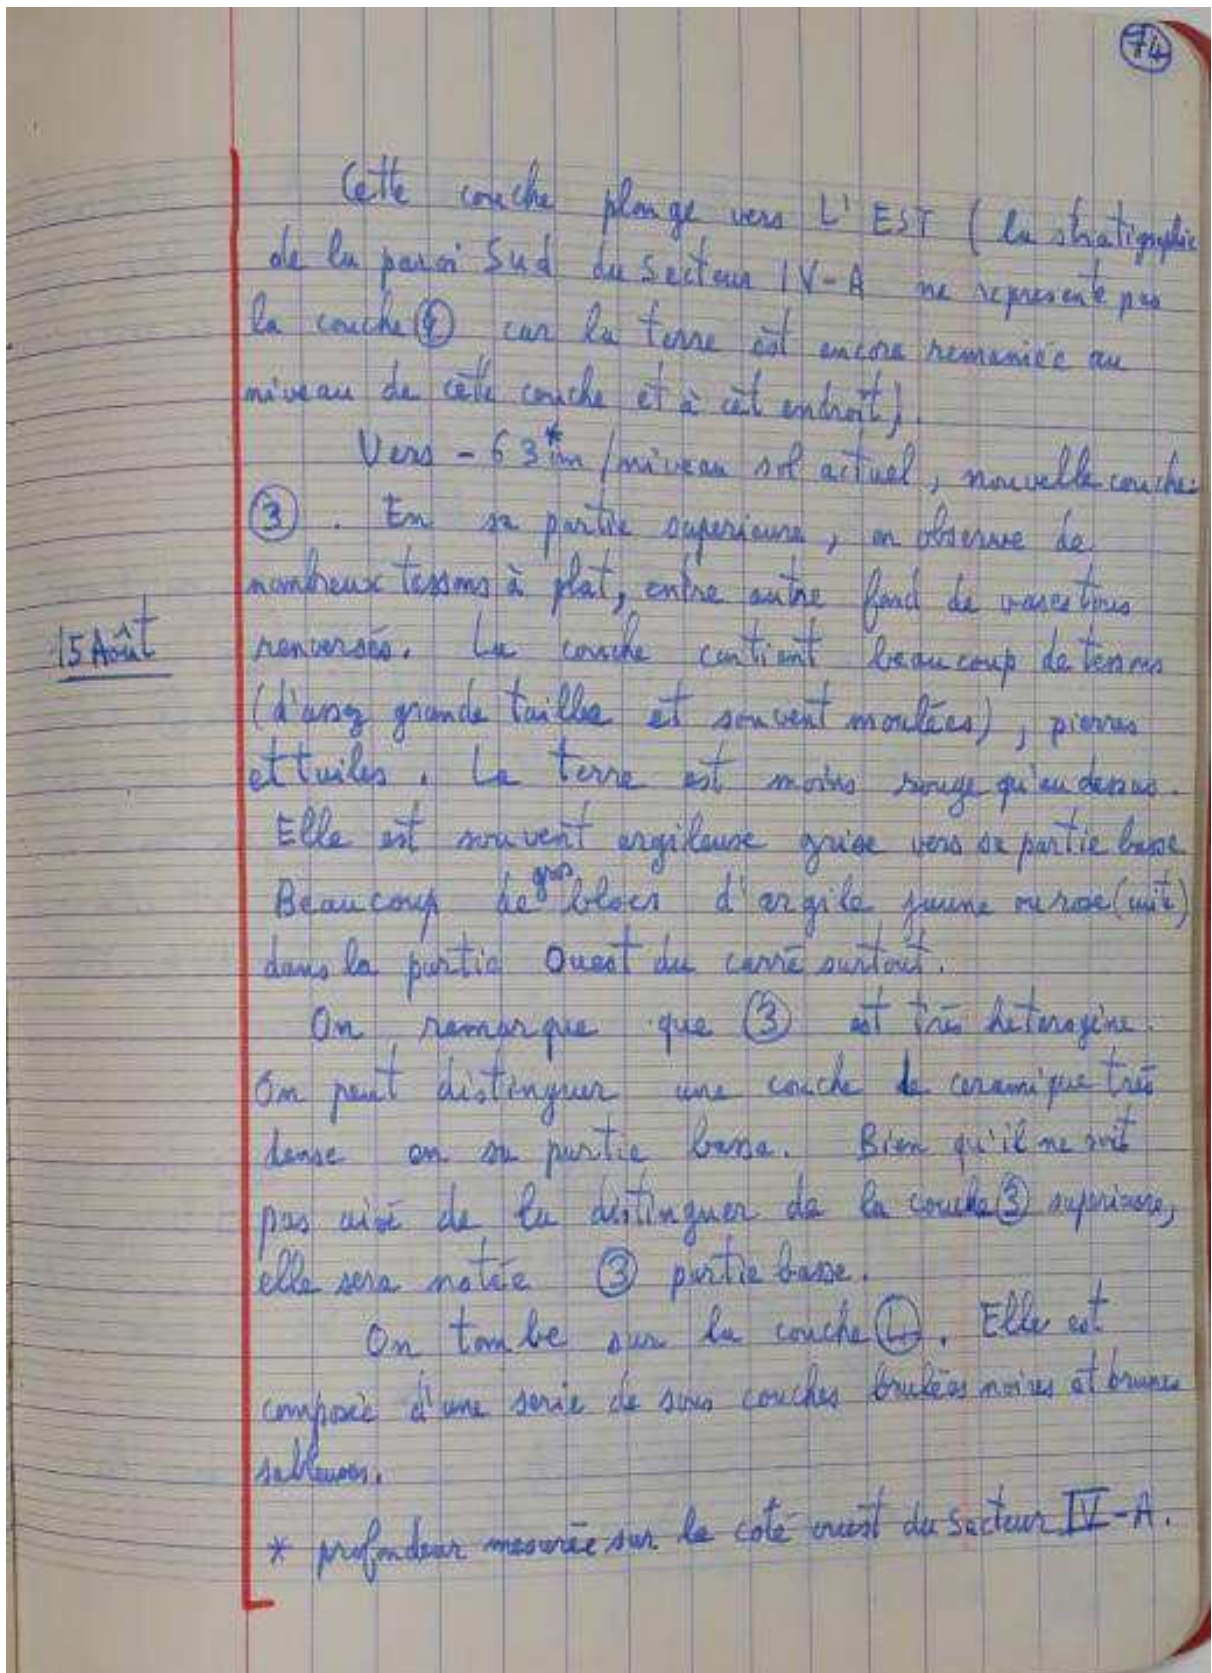 74
Cette couche plonge vers L'EST (la stratigraphie
de la paroi Sud du Secteur IV-A ne represente pas
la couche car la terre est encore remaniée au
niveau de cette couche et à cet endroit).
Vers - 63* /niveau sol actuel, nouvelle couche:
③. En sa partie superieure, on observe de
nombreux tessons à plat, entre autre fond de vases tous
15 Août
renversés. La couche contient beaucoup de tessons
(d'assez grande taille et souvent moulées), pierres
et tuiles. La terre est moins rouge qu'au dessus.
Elle est souvent argileuse grise vers sa partie basse
Beaucoup de gros blocs d'argile jaune ou rose (cuite)
dans la partie Ouest du carré surtout.
On remarque que ③ est très heterogène.
On peut distinguer une couche de ceramique très
dense en sa partie basse. Bien qu'il ne soit
pas aisé de la distinguer de la couche ③ superieure,
elle sera notée ③ partie basse.
On tombe sur la couche ④. Elle est
composée d'une serie de sous couches brulées noires et brunes
sableuses.
* profondeur mesurée sur le coté ouest du Secteur IV-A.